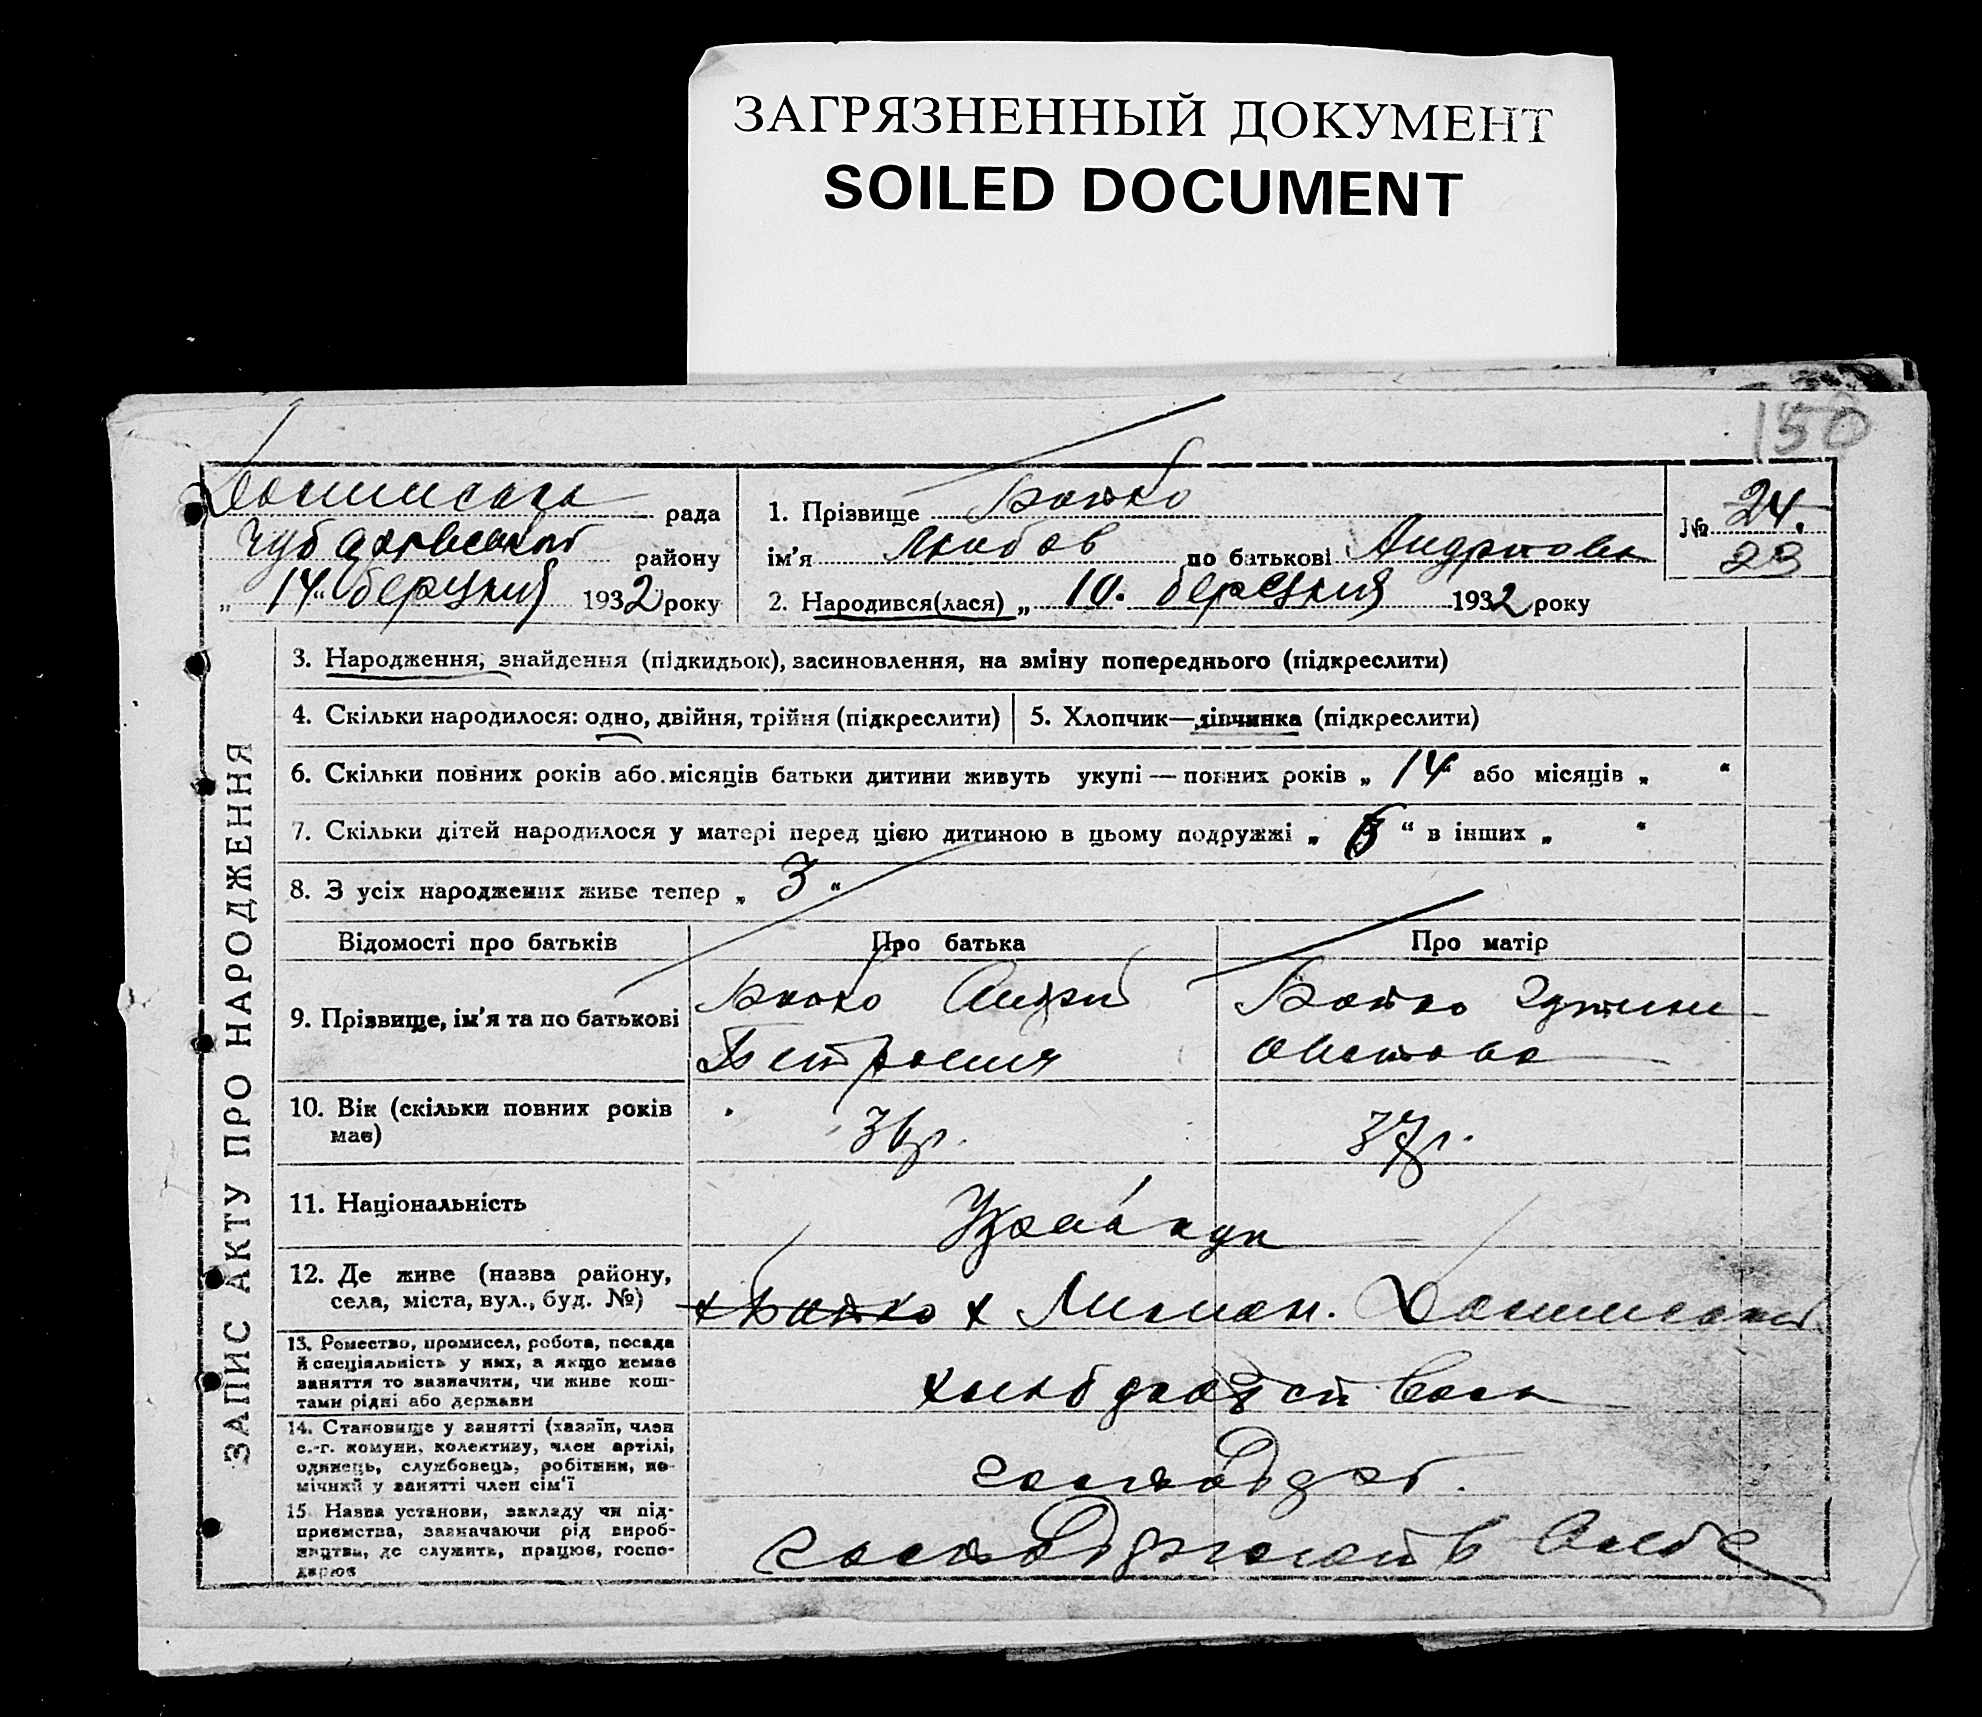 ЗАГРЯЗНЕННЫЙ ДОКУМЕНТ
SOILED DOCUMENT
150
рада
району
„ 14 “ березня 1932 року
1. Прізвище Батко
ім'я Любов по батькові Андріївна
2. Народився(лася) „ 10. березня 1932 року
№ 24.
23
ЗАПИС АКТУ ПРО НАРОДЖЕННЯ
3. Народження, знайдення (підкидьок), засиновлення, на зміну попереднього (підкреслити)
4. Скільки народилося: одно, двійня, трійня (підкреслити)
5. Хлопчик—дівчинка (підкреслити)
6. Скільки повних років або місяців батьки дитини живуть укупі — повних років „ 14 “ або місяців „ “
7. Скільки дітей народилося у матері перед цією дитиною в цьому подружжі „ “ в інших „ “
8. З усіх народжених живе тепер „ 3 “
Відомості про батьків
Про батька
Про матір
9. Прізвище, ім'я та по батькові
Батко Андрій
Петрович
Батко
10. Вік (скільки повних років
має)
36 р.
37 р.
11. Національність
12. Де живе (назва району,
села, міста, вул., буд. №)
х Батко х
13. Ремество, промисел, робота, посада
й спеціяльність у них, а якщо немає
заняття то зазначити, чи живе кош-
тами рідні або держави
хліборобство
14. Становище у занятті (хазяїн, член
с.-г. комуни, колективу, член артілі,
одинець, службовець, робітник, по-
мічний у занятті член сім'ї
15. Назва установи, закладу чи під-
приємства, зазначаючи рід вироб-
ництва, де служить, працює, госпо-
дарює